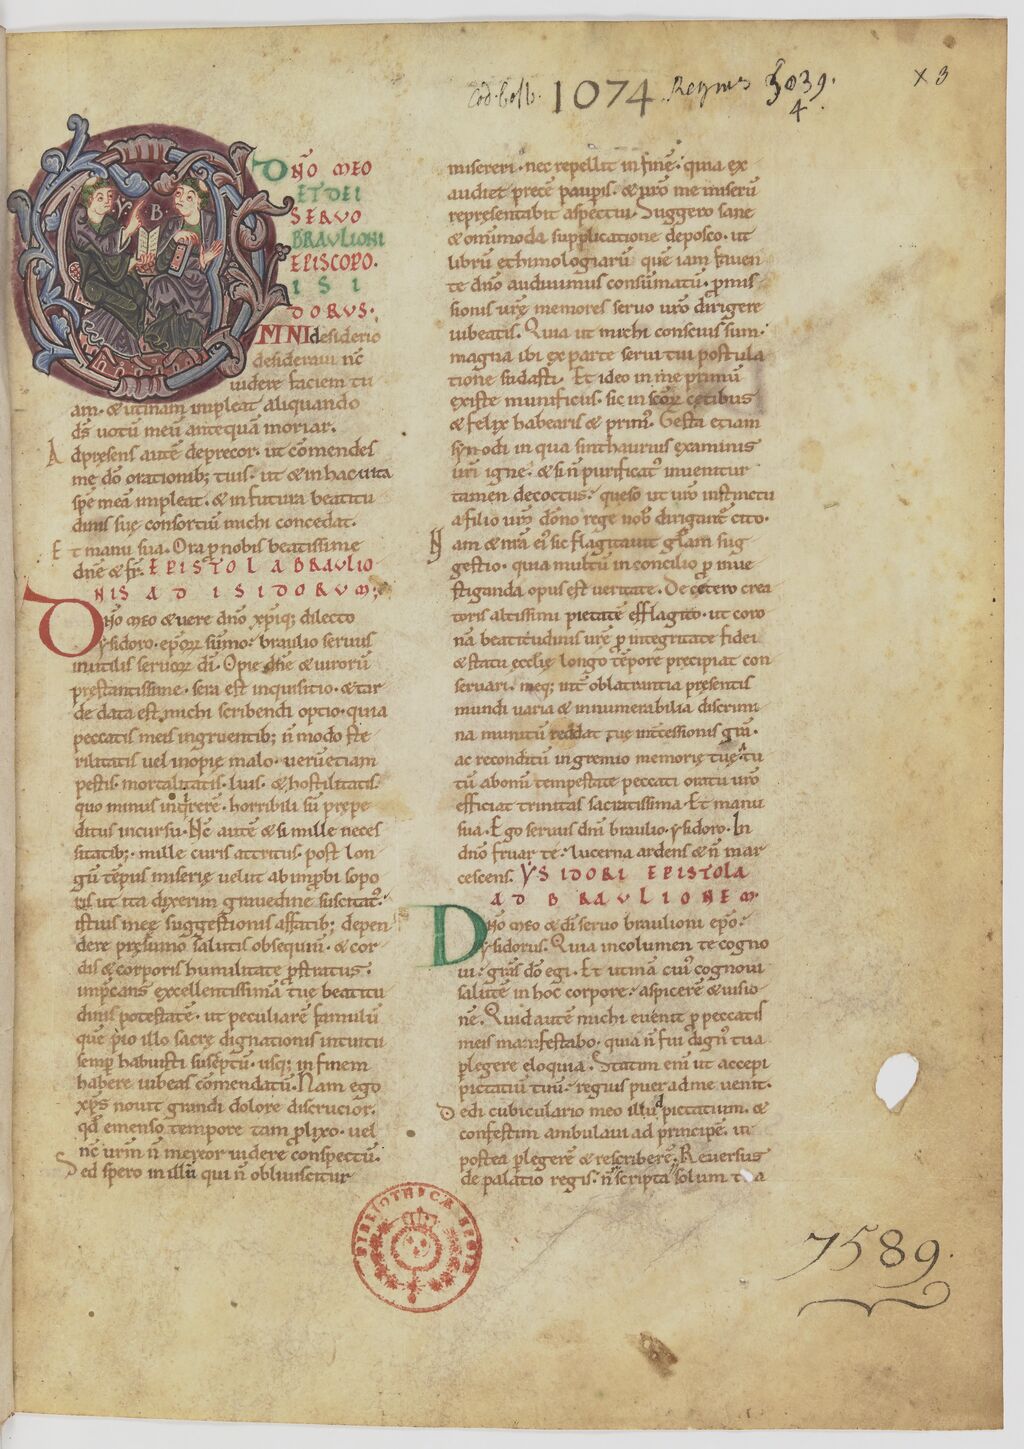 Cod. Colb. 1074 Regius 3039.
4.
x 3
Y. B.
DNO MEO
ET DEI
SERVO
BRAULIONI
EPISCOPO.
ISI
DORVS.
OMNI desiderio
desideraui nc̄
uidere faciem tu
am. & utinam impleat aliquando
dr̄ uotū meū anteq̄uā moriar.
Ad presens autē deprecor. ut cōmendes
me dō orationib; tuis. ut & in hac uita
spē meā impleat. & in futura beatitu
dinis tuę consortiū michi concedat.
Et manu sua. Ora p̱ nobis beatissime
dn̄e & fr̄. EPISTOLA BRAULIO
NIS AD ISIDORUM;
Dn̄o meo & uere dn̄o xp̄iq; dilecto
ysidoro. ep̄oꝝ sūmo. braulio seruus
inutilis seruoꝝ dī. O pie dn̄e & uiroꝝū
prestantissime. sera est inquisitio. & tar
de data est michi scribendi optio. quia
peccatis meis ingruentib; n̄ modo ste
rilitatis uel inopię malo. uerū etiam
pestis mortalitatis. luis. & hostilitatis.
quo minus inqͥrerē. horribili sū prepe
ditus incursu. Nc̄ autē & si mille neces
sitatib; mille curis attritus. post lon
gū tēpus miserię uelut ab inp̱bi sopo
ris ut ita dixerim grauedine suscitat᷒.
istius meę suggestionis affatib; depen
dere presumo salutis obsequiū. & cor
dis & corporis humilitate p̱stratus.
imp̱cans excellentissimā tuę beatitu
dinis potestatē. ut peculiarē famulū
quē pio illo sacrę dignationis intuitu
semp̱ habuisti susceptū. usq; in finem
habere iubeas cōmendatū. Nam ego
xp̄s nouit grandi dolore discrucior.
qđ emenso tempore tam p̱lixo. uel
nc̄ ur̄m n̄ mereor uidere conspectū.
Sed spero in illū qui n̄ obliuiscitur
misereri. nec repellit in finē. quia ex
audiet precē paup̱is. & ur̄o me miserū
representabit aspectui. Suggero sane
& omnimoda supplicatione deposco. ut
librū ethimologiarū quē iam fauen
te dn̄o audiuimus consūmatū. p̱mis
sionis ur̄ę memores seruo ur̄o dirigere
iubeatis. Quia ut michi conscius sum.
magna ibi ex parte serui tui postula
tione sudasti. Et ideo in me primū
existe munificus. sic in scōꝝ cetibus
& felix habearis & prim᷒. Gesta etiam
synodi in qua sinthaurius examinis
ur̄i igne. & si n̄ purificat᷒ inuenitur
tamen decoctus. queso ut ur̄o instinctu
a filio ur̄o dōno rege nob̄ dirigant᷒ cito.
Nam & nr̄a ei᷒ sic flagitauit gl̄am sug
gestio. quia multū in concilio p̱ inue
stiganda opus est ueritate. De cetero crea
toris altissimi pietatē efflagito. ut coro
nā beatitudinis ur̄ę p̱ integritate fidei
& statu ecclię longo tēpore precipiat con
seruari. meq; int̄ oblatrantia presentis
mundi uaria & innumerabilia discrimi
na munitū reddat tuę intc̄essionis gr̄a.
ac reconditū in gremio memorię tuę tu
tū ab omni tempestate peccati oratu ur̄o
efficiat trinitas sacratissima. Et manu
sua. Ego seruus dn̄i braulio. ysidoro. In
dn̄o fruar te. lucerna ardens & n̄ mar
cescens. YSIDORI EPISTOLA
AD BRAULIONEM.
Dn̄o meo & dī seruo braulioni ep̄o.
ysidorus. Quia incolumen te cogno
ui. gr̄as dō egi. Et utinā cui᷒ cognoui
salutē in hoc corpore. aspicerē & uisio
nē. Quid autē michi euenit p̱ peccatis
meis manifestabo. quia n̄ fui dign᷒ tua
p̱legere eloquia. Statim eni ut accepi
pictatiū tuū. regius puer ad me uenit.
Dedi cubiculario meo illuđ pictatium. &
confestim ambulaui ad principē. ut
postea p̱legerē & rescriberē. Reuersus
de palatio regis. n̄ scripta solum tua
BIBLIOTHECÆ REGIÆ
7589.